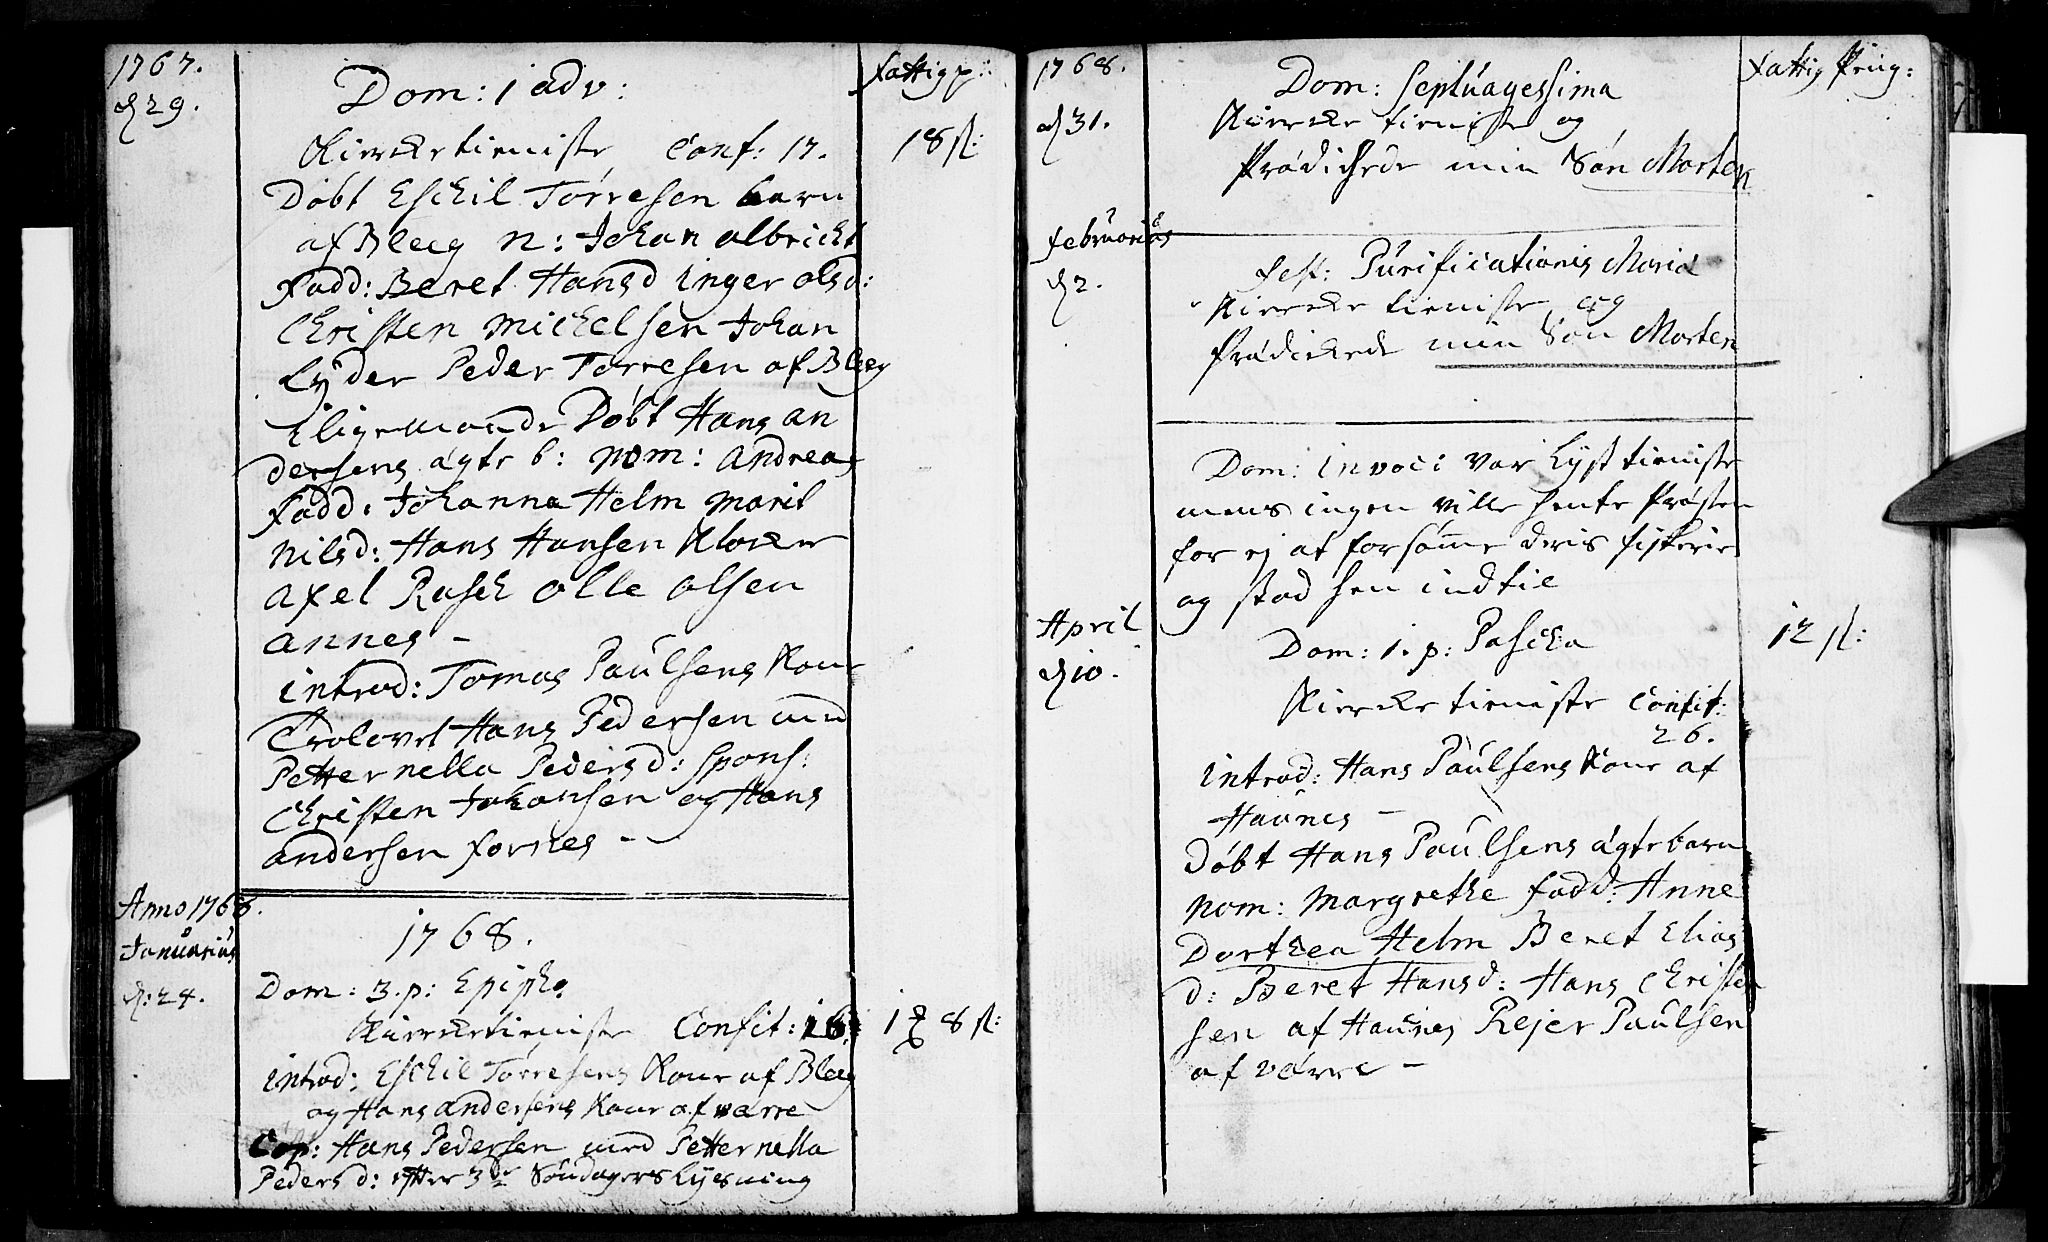 1767.
d 29.
Fattigp:
Dom: 1 adv:
Kierketieniste Conf: 17.
18 sl:
Døbt Eschil Torresen barn
af Bleeg N: Johan Albricht
Fadd: Beret Hansd Inger Olsd:
Christen Michelsen Johan
Lyder Peder Torresen af Bleeg
Eligemaade Døbt Hans An
dersens ægte b: Nom: Andreas
Fadd: Johanna Helm Marit
Nilsd: Hans Hansen Klocker
Axel Rasch Olle Olsen
Annes -
Introd: Tomas Paulsens Kone
Trolovet Hans Pedersen med
Petternella Pedersd: Spons:
Christen Johansen og Hans
Andersen Fornes -
Anno 1768.
Januarius
d: 24.
1768.
Dom: 3. p: Epiph:
Kierketieniste Confit: 16:
8 sl:
Introd: Eschil Torresens Kone af Bleeg
og Hans Andersens Kone af Værre
Cop: Hans Pedersen med Petternella
Pedersd: efter 3de Søndagers Lysning
1768.
d 31.
Fattig Peng:
Dom: Septuagessima
Kiercke tieniste og
Prædickede min Søn Morten
Februarius
d 2.
Fest: Purificationis Mariæ
Kiercke tieniste og
Prædickede min Søn Morten
Dom: Invoci var Lyst tieniste
mens ingen ville hente Præsten
for ej at forsømme deris fiskerie
og stod hen indtil
April
d 10.
Dom: 1. p: Pascha
12 sl:
Kiercke tieniste Confit:
26.
Introd: Hans Paulsens Kone af
Haunes -
Døbt Hans Paulsens ægte barn
Nom: Margrethe Fadd: Anne
Dorthea Helm Beret Elias
d: Beret Hansd: Hans Christen
sen af Haunes Rejer Paulsen
af Værre -